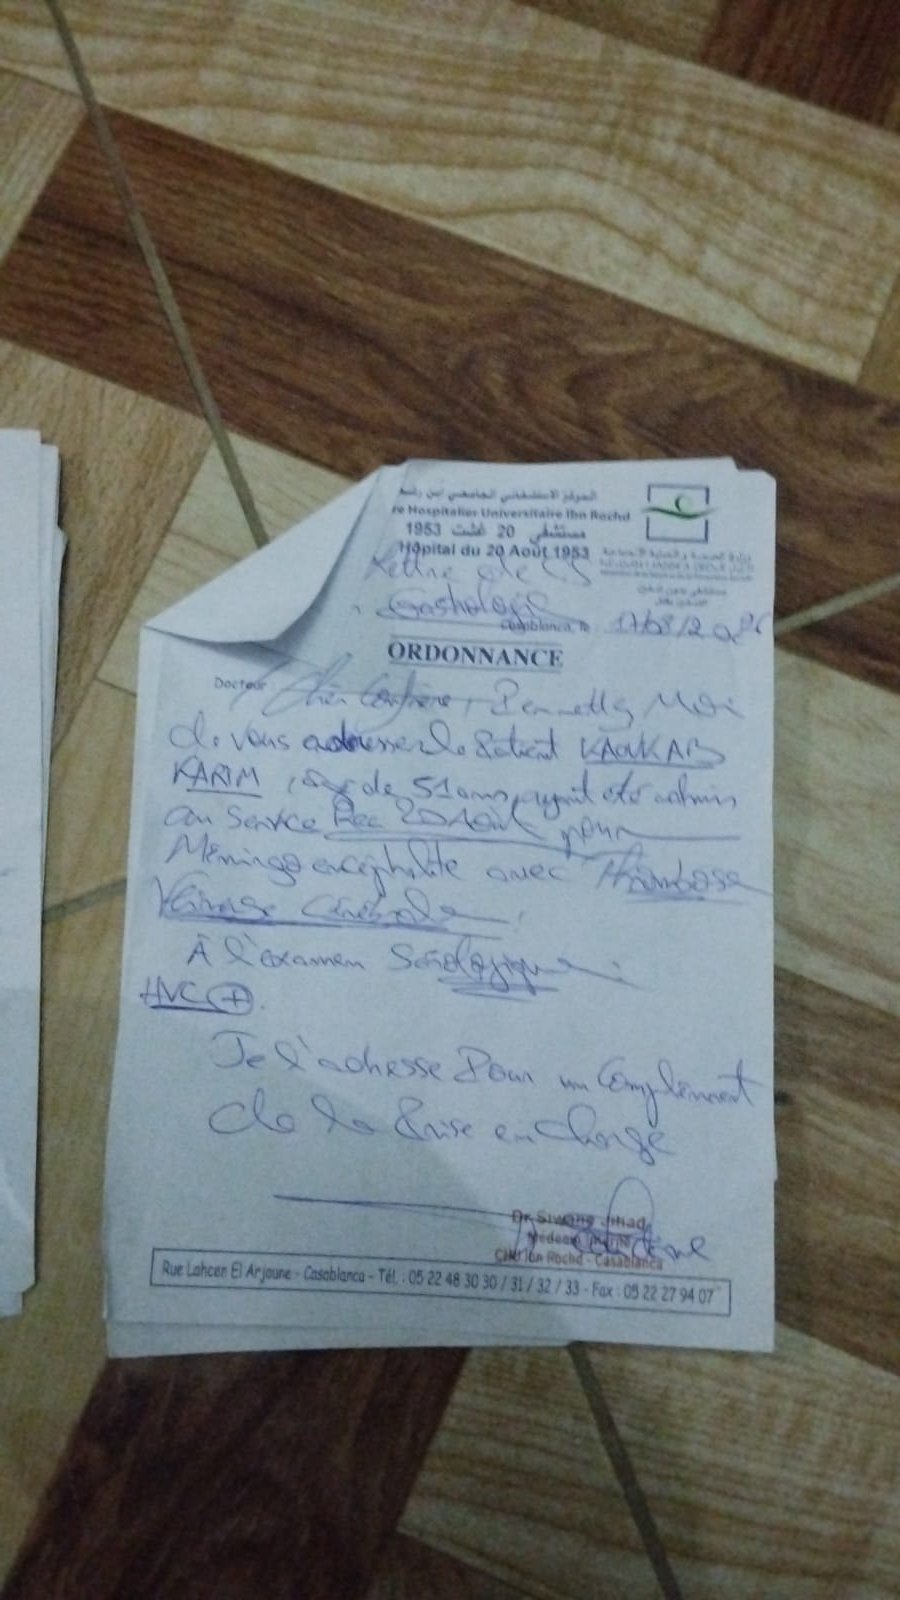 المركز الاستشفائي الجامعي ابن رشد
re Hospitalier Universitaire Ibn Rochd
مستشفى 20 غشت 1953
Hôpital du 20 Août 1953
Lettre de
Casablanca, le 17/08/2
ORDONNANCE
Docteur Cher Confrère, Permettez Moi
de vous adresser le Patient KAOUKAB
KARIM, âgé de 51 ans, ayant été admis
au Service Rea 20 Aout pour
Méningo encéphalite avec Thrombose
Veineuse Cérébrale.
À l'examen Sérologique :
HVC (+).
Je l'adresse Pour un Complément
de la Prise en charge
Dr Siwane Jihad
Médecin
CHU Ibn Rochd - Casablanca
Rue Lahcen El Arjoune - Casablanca - Tél. : 05 22 48 30 30 / 31 / 32 / 33 - Fax : 05 22 27 94 07